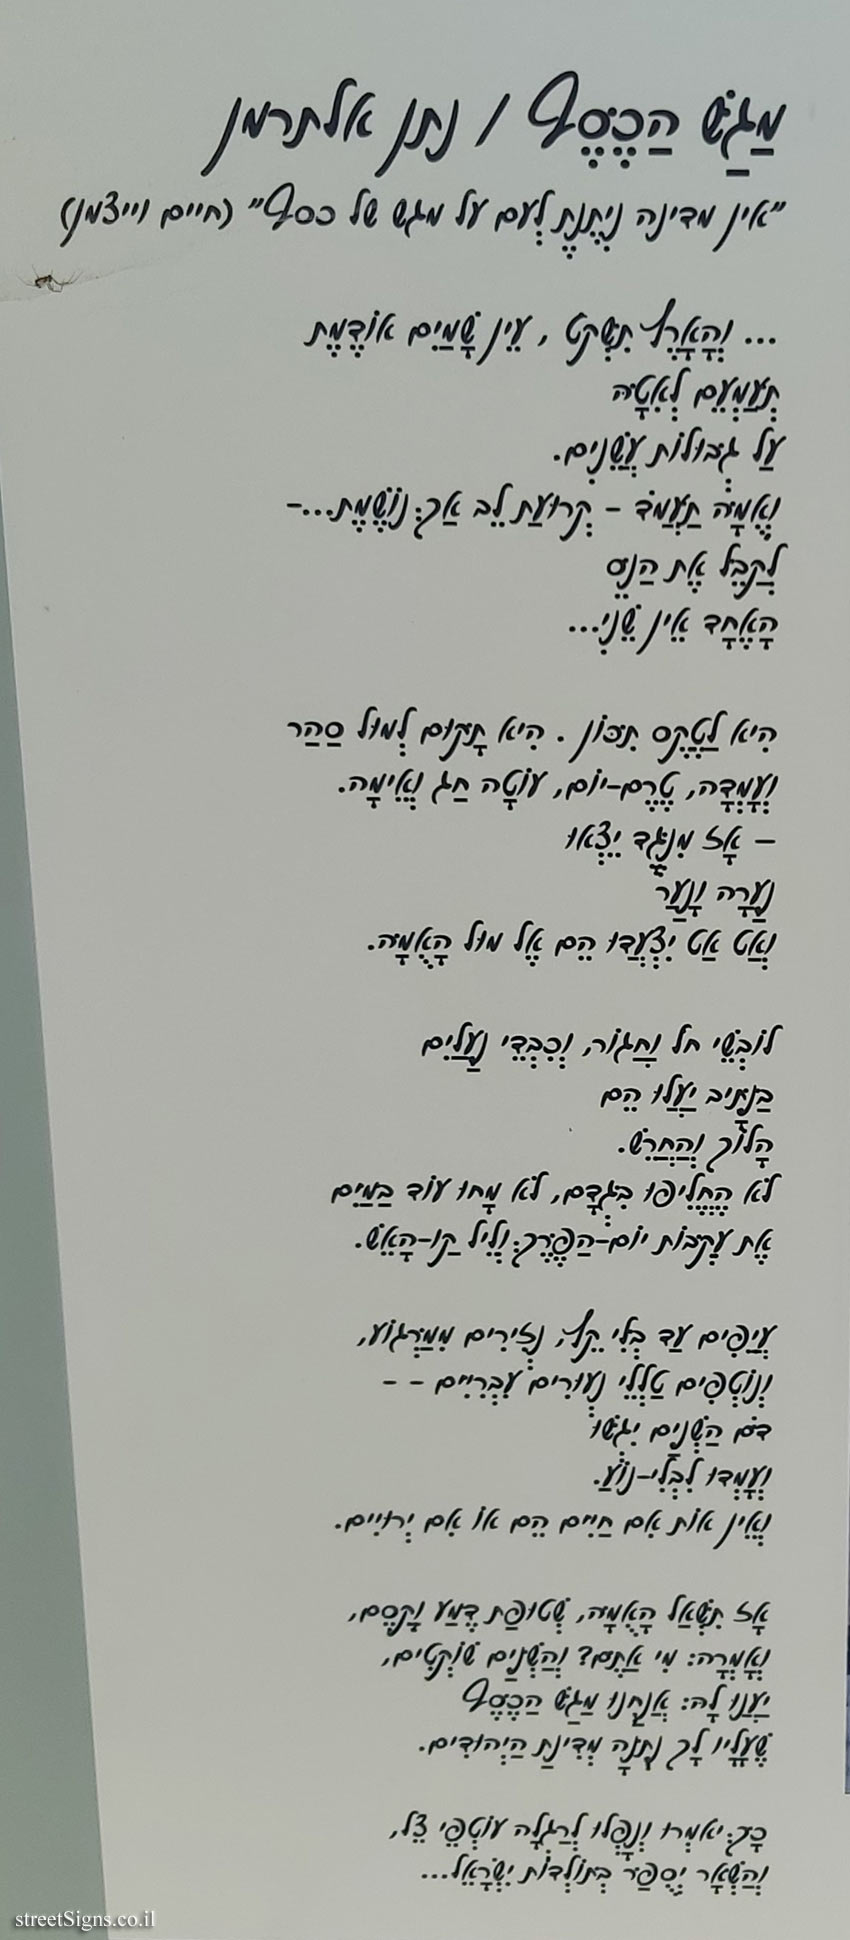 מַגַּשׁ הַכֶּסֶף / נתן אלתרמן
"אין מדינה נִיתֶּנֶת לְעם על מגש של כסף" (חיים וייצמן)
... וְהָאָרֶץ תִּשְׁקֹט, עֵין שָׁמַיִם אוֹדֶמֶת
תְּעַמְעֵם לְאִטָּהּ
עַל גְּבוּלוֹת עֲשֵׁנִים.
וְאֻמָּה תַּעֲמֹד – קְרוּעַת לֵב אַךְ נוֹשֶׁמֶת...-
לְקַבֵּל אֶת הַנֵּס
הָאֶחָד אֵין שֵׁנִי...
הִיא לַטֶּקֶס תִּכּוֹן. הִיא תָּקוּם לְמוּל סַהַר
וְעָמְדָה, טֶרֶם-יוֹם, עוֹטָה חַג וְאֵימָה.
– אָז מִנֶּגֶד יֵצְאוּ
נַעֲרָה וָנַעַר
וְאַט אַט יִצְעֲדוּ הֵם אֶל מוּל הָאֻמָּה.
לוֹבְשֵׁי חל וַחֲגוֹר, וְכִבְדֵי נַעֲלַיִם
בַּנָּתִיב יַעֲלוּ הֵם
הָלוֹךְ וְהַחְרֵשׁ.
לֹא הֶחֱלִיפוּ בִּגְדָם, לֹא מָחוּ עוֹד בַּמַּיִם
אֶת עִקְּבוֹת יוֹם-הַפֶּרֶךְ וְלֵיל קַו-הָאֵשׁ.
עֲיֵפִים עַד בְּלִי קֵץ, נְזִירִים מִמַּרְגּוֹעַ,
וְנוֹטְפִים טַלְלֵי נְעוּרִים עִבְרִיִּים - -
דֹּם הַשְּׁנַיִם יִגְּשׁוּ
וְעָמְדוּ לִבְלִי-נוֹעַ.
וְאֵין אוֹת אִם חַיִּים הֵם אוֹ אִם יְרוּיִים.
אָז תִּשְׁאַל הָאֻמָּה, שְׁטוּפַת דֶּמַע וָקֶסֶם,
וְאָמְרָה: מִי אַתֶּם? וְהַשְּׁנַיִם שׁוֹקְטִים,
יַעֲנוּ לָהּ: אֲנַחְנוּ מַגַּשׁ הַכֶּסֶף
שֶׁעָלָיו לָךְ נִתְּנָה מְדִינַת הַיְּהוּדִים.
כָּךְ יֹאמְרוּ וְנָפְלוּ לְרַגְלָהּ עוֹטְפֵי צֵל,
וְהַשְּׁאָר יְסֻפַּר בְּתוֹלְדוֹת יִשְׂרָאֵל...
streetSigns.co.il